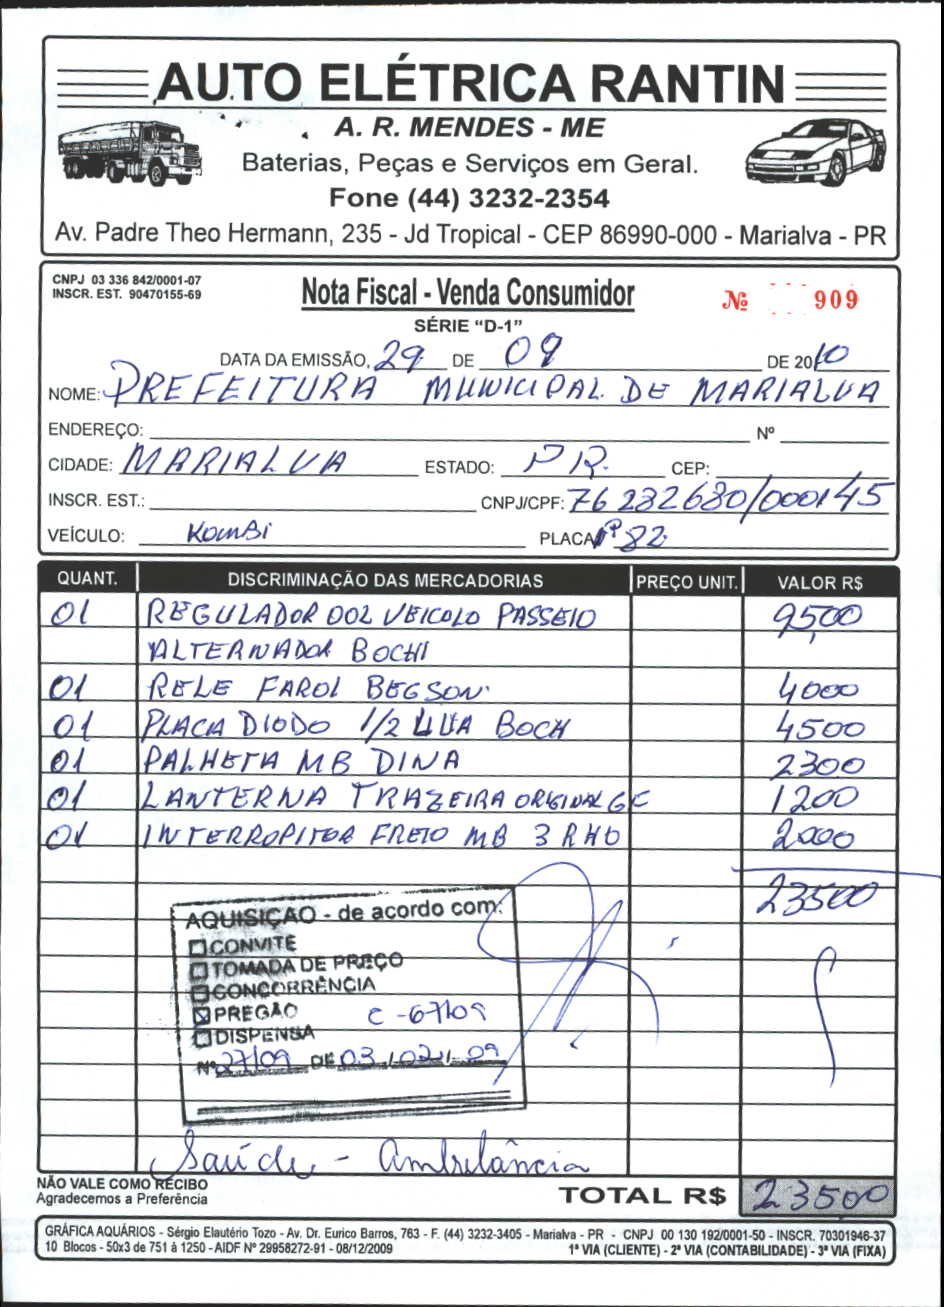 AUTO ELÉTRICA RANTIN
A. R. MENDES - ME
Baterias, Peças e Serviços em Geral.
Fone (44) 3232-2354
Av. Padre Theo Hermann, 235 - Jd Tropical - CEP 86990-000 - Marialva - PR
CNPJ 03 336 842/0001-07
INSCR. EST. 90470155-69
Nota Fiscal - Venda Consumidor
Nº 909
SÉRIE "D-1"
DATA DA EMISSÃO, 29 DE 09 DE 2010
NOME: PREFEITURA MUNICIPAL DE MARIALVA
ENDEREÇO: Nº
CIDADE: MARIALVA ESTADO: PR. CEP:
INSCR. EST.: CNPJ/CPF: 76 282680/000145
VEÍCULO: KOMBI PLACA Nº 82
QUANT. DISCRIMINAÇÃO DAS MERCADORIAS PREÇO UNIT. VALOR R$
01 REGULADOR 002 VEICULO PASSEIO 95,00
ALTERNADOR BOCHI
01 RELE FAROL BEGSON 4000
01 PLACA DIODO 1/2 LUA BOCH 4500
01 PALHETA MB DINA 2300
01 LANTERNA TRAZEIRA ORIGINAL GE 1200
01 INTERROPITOR FREIO MB 3 RHO 2000
23500
AQUISIÇÃO - de acordo com:
CONVITE
TOMADA DE PREÇO
CONCORRÊNCIA
PREGÃO C-67/09
DISPENSA
Nº 27/09 DE 03/02/09
Saúde - Ambulância
NÃO VALE COMO RECIBO
Agradecemos a Preferência
TOTAL R$ 23500
GRÁFICA AQUÁRIOS - Sérgio Elautério Tozo - Av. Dr. Eurico Barros, 763 - F. (44) 3232-3405 - Marialva - PR - CNPJ 00 130 192/0001-50 - INSCR. 70301946-37
10 Blocos - 50x3 de 751 à 1250 - AIDF Nº 29958272-91 - 08/12/2009 1ª VIA (CLIENTE) - 2ª VIA (CONTABILIDADE) - 3ª VIA (FIXA)